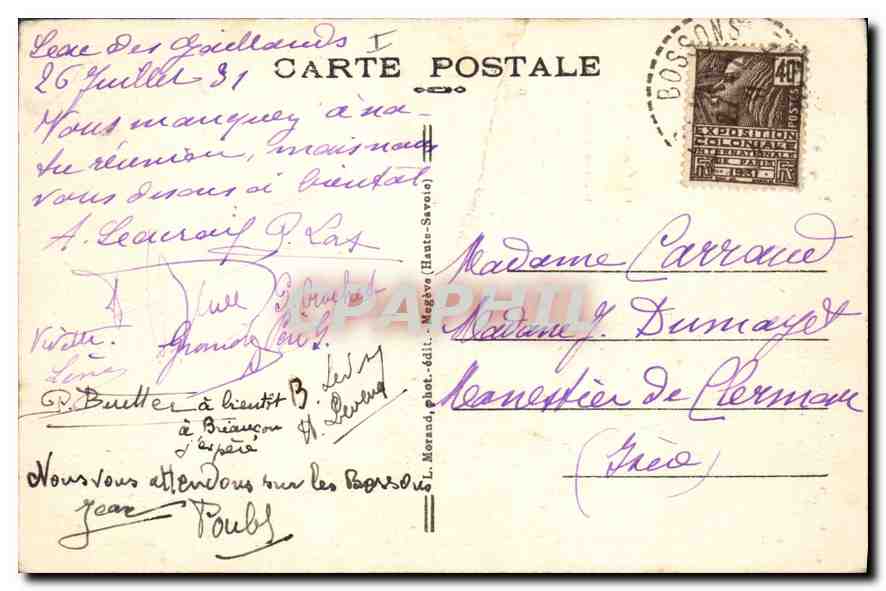 Lac des Gaillands I
26 Juillet 31
Vous manquez à no-
tre réunion, mais nous
vous disons à bientôt
A. P. Las
Vivette
à bientôt
à Briançon
j'espère
Nous vous attendons sur les Bossons
Jean
CARTE POSTALE
L. Morand, phot.-édit. - Megève (Haute-Savoie)
BOSSONS
40c
POSTES
EXPOSITION
COLONIALE
INTERNATIONALE
DE PARIS
1931
RF RF
Madame Carraud
Madame J. Dumayet
Monestier de Clermont
(Isère)
CPAPHIL